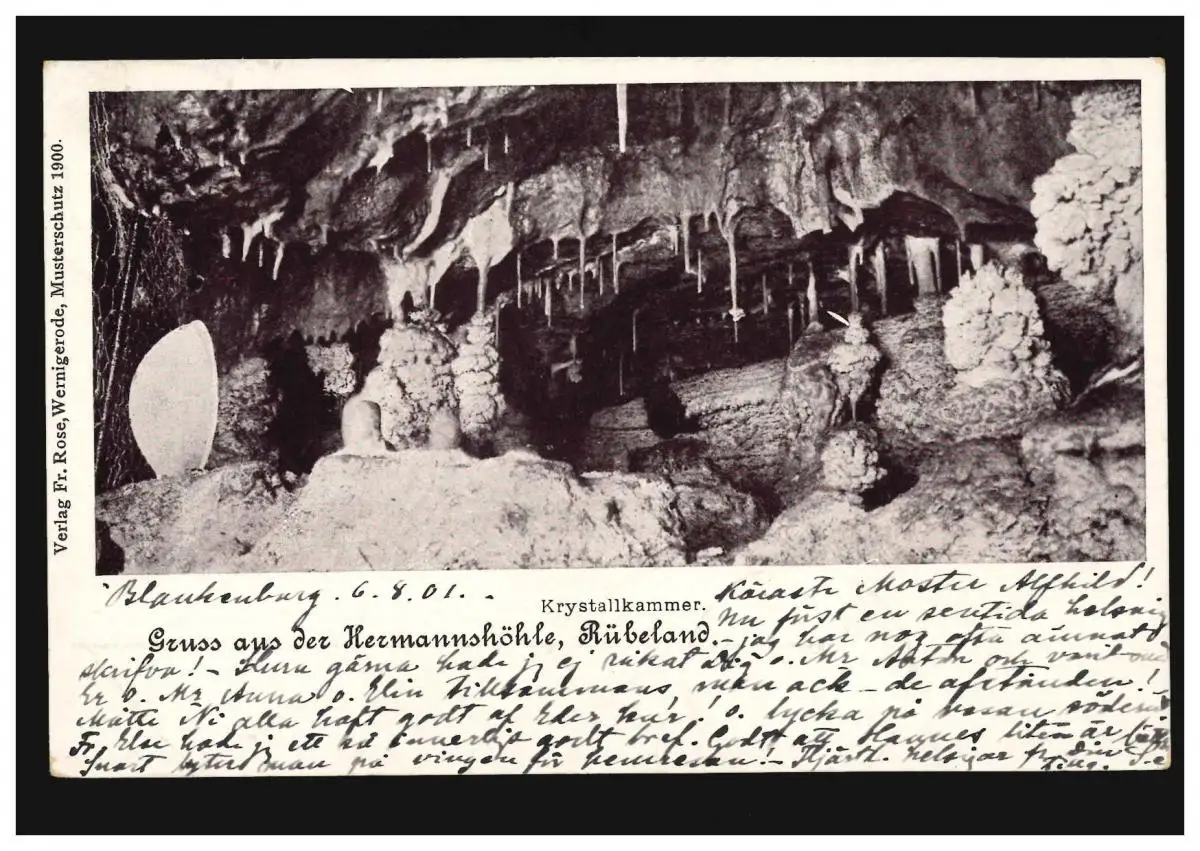 Verlag Fr. Rose, Wernigerode, Musterschutz 1900.
Blankenburg. 6. 8. 01. -
Krystallkammer.
Gruss aus der Hermannshöhle, Rübeland.
Käraste Moster Alfhild!
Nu just en sentida helsnig
- jag har nog ofta ämnat
skrifva! - Huru gärna hade jg ej råkat Dig o. Mr Anton och varit
Er o. Mr Anna o. Elin tillsammans, men ack - de afstånden! -
Måtte Ni alla haft godt af Eder kur! o. lycka på resan
Fr. Else hade jg ett så innerligt godt bref. Godt att Hannes liten är
Snart lyfter man på vingen för hemresan! - Hjärtl. helsigar fr. din